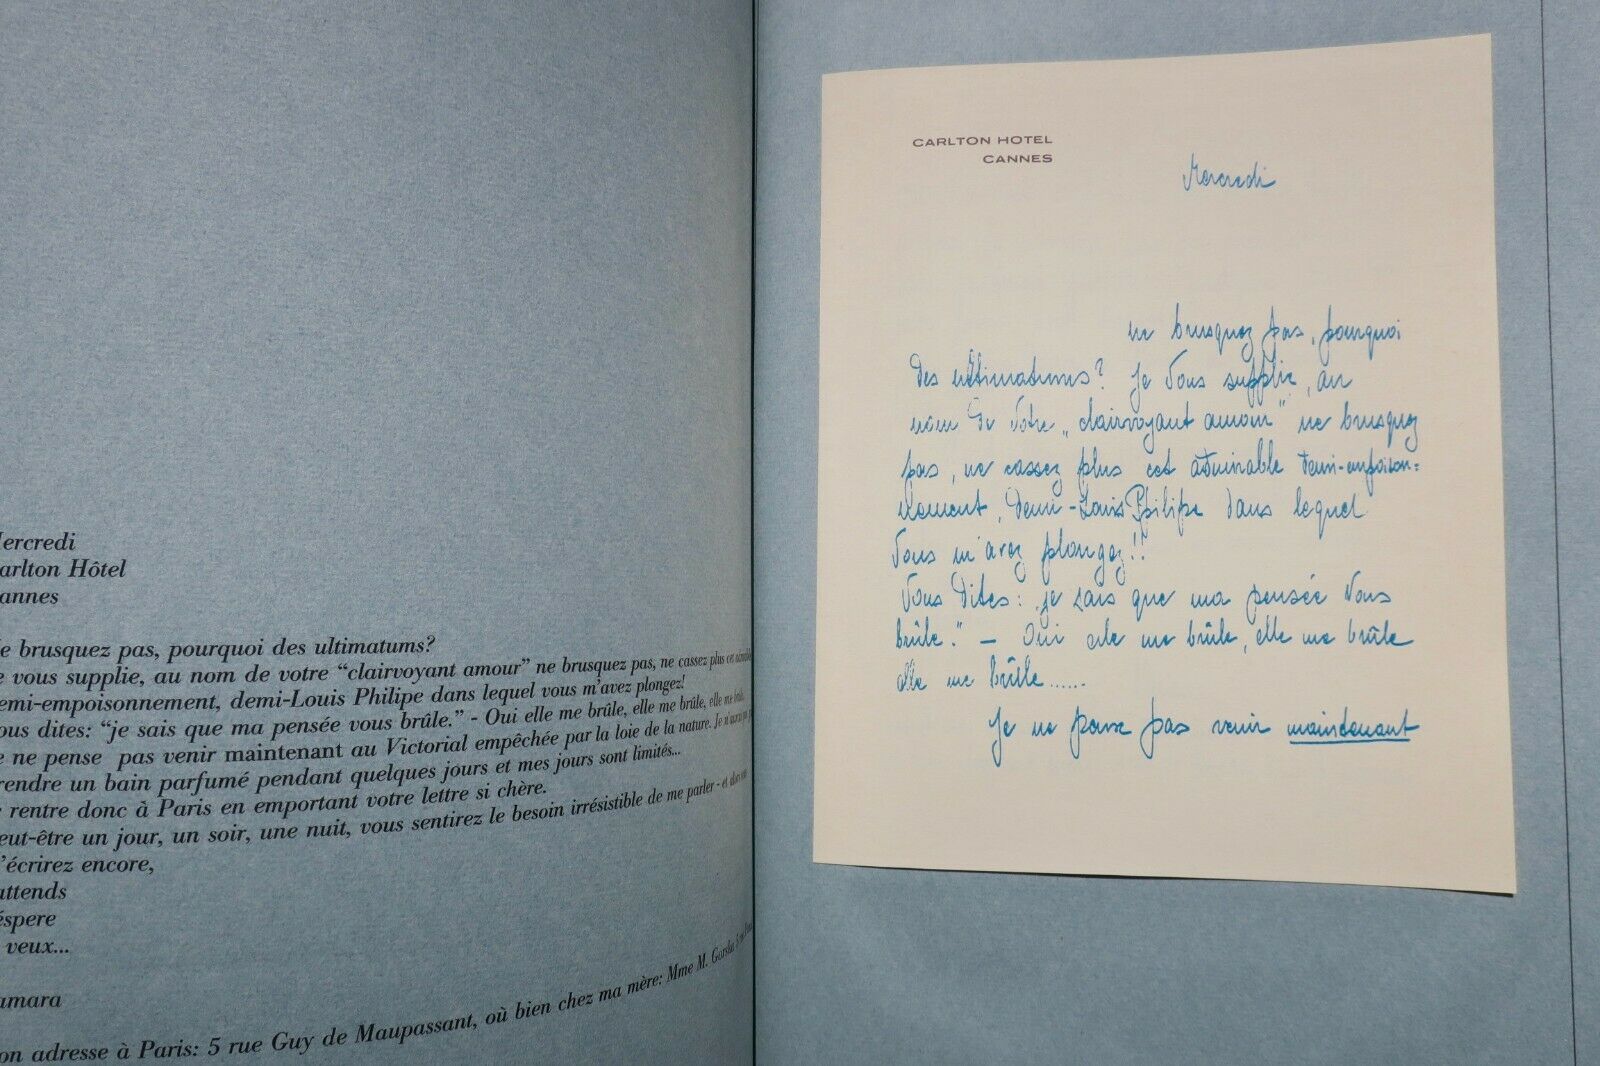 ercredi
arlton Hôtel
annes
e brusquez pas, pourquoi des ultimatums?
e vous supplie, au nom de votre “clairvoyant amour” ne brusquez pas, ne cassez plus cet
emi-empoisonnement, demi-Louis Philipe dans lequel vous m'avez plongez!
ous dites: “je sais que ma pensée vous brûle.” - Oui elle me brûle, elle me brûle, elle me
e ne pense pas venir maintenant au Victorial empêchée par la loie de la nature. Je
rendre un bain parfumé pendant quelques jours et mes jours sont limités...
rentre donc à Paris en emportant votre lettre si chère.
eut-être un jour, un soir, une nuit, vous sentirez le besoin irrésistible de me parler - et
'écrirez encore,
attends
éspere
veux...
amara
on adresse à Paris: 5 rue Guy de Maupassant, où bien chez ma mère: Mme M.
CARLTON HOTEL
CANNES
Mercredi
ne brusquez pas, pourquoi
des ultimatums? Je Vous supplie, au
nom de Votre „clairvoyant amour" ne brusquez
pas, ne cassez plus cet admirable demi-empoison=
nement, demi-Louis Philipe dans lequel
Vous m'avez plongez!!
Vous dites: „je sais que ma pensée Vous
brûle." – Oui elle me brûle, elle me brûle
elle me brûle......
Je ne pense pas venir maintenant